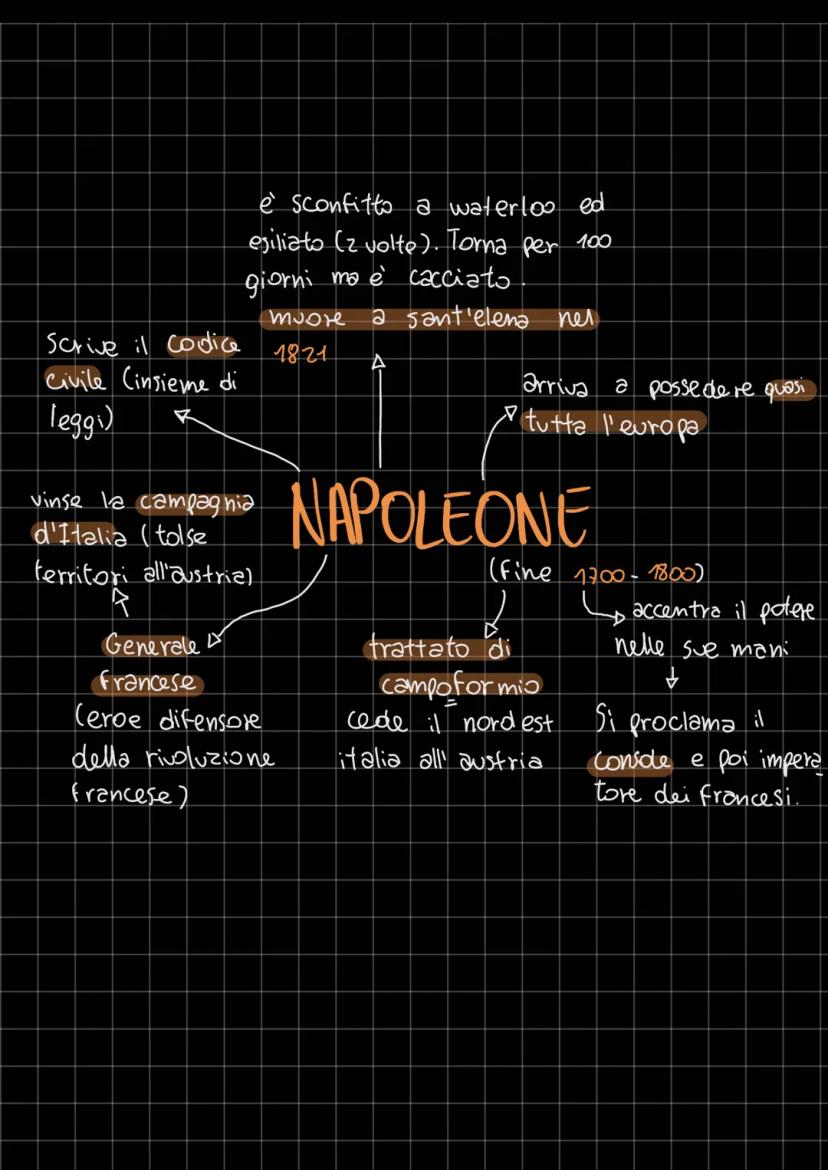 è sconfitto a waterloo ed
esiliato (2 volte). Torna per 100
giorni ma è cacciato.
muore a sant'elena nel
1821
Scrive il codice
civile (insieme di
leggi)
arriva a possedere quasi
tutta l'europa
vinse la campagnia
d'Italia (tolse
territori all'austria)
NAPOLEONE
(fine 1700 - 1800)
Generale
francese
(eroe difensore
della rivoluzione
francese)
trattato di
campoformio
cede il nord est
italia all'austria
accentra il potere
nelle sue mani
Si proclama il
console e poi impera
tore dei francesi.